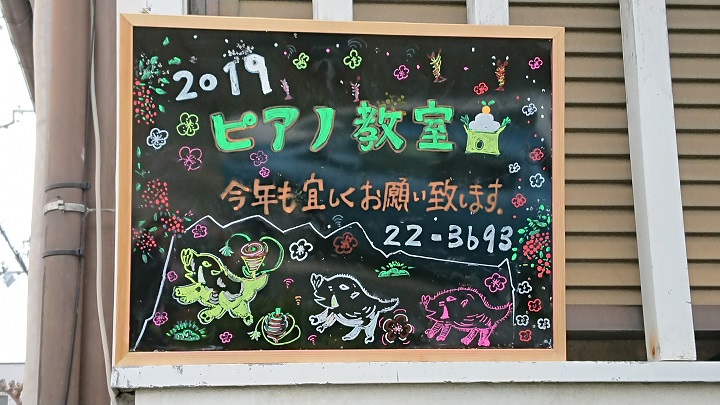 2019
ピアノ教室
今年も宜しくお願い致します。
22-3693